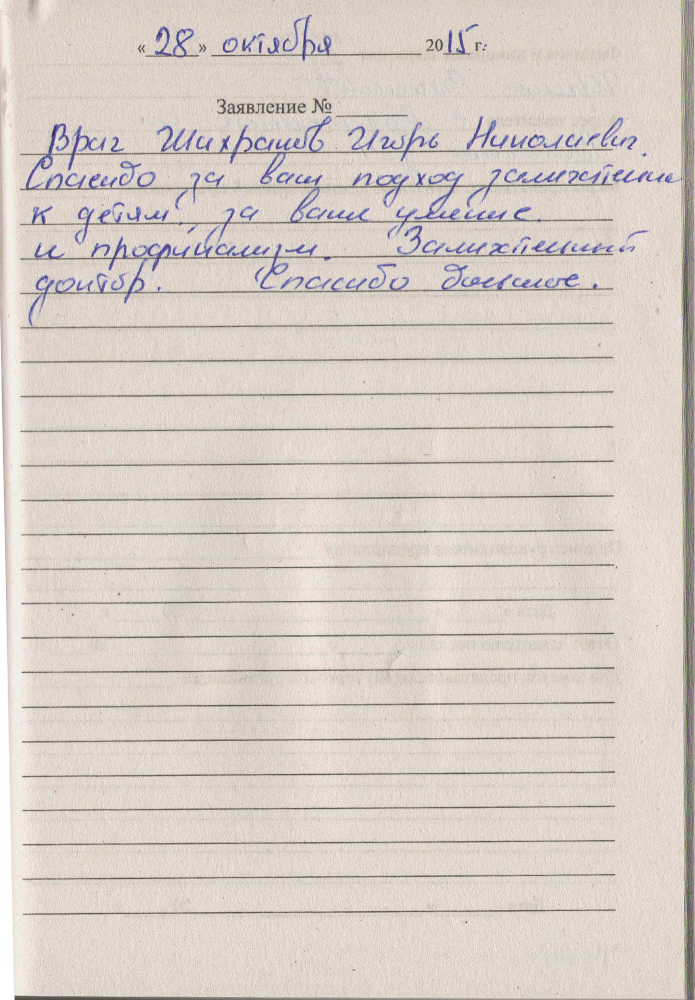 «28» октября 2015 г.
Заявление №
Врач Шихрагимов Игорь Николаевич.
Спасибо за ваш подход
к детям, за ваше умение
и профиционализм. Замечательный
доктор. Спасибо большое.